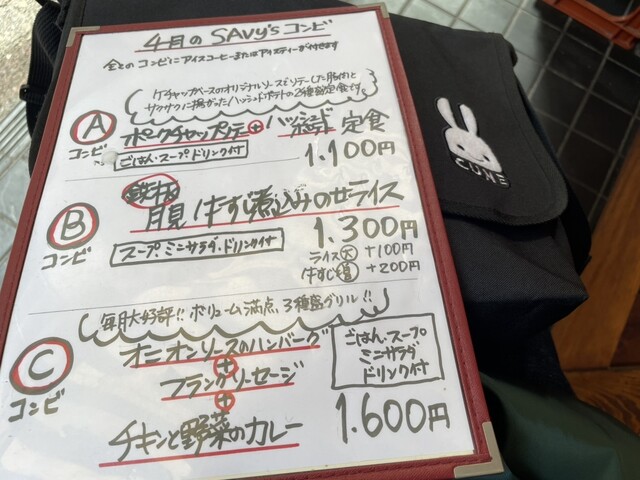 4月の SAVy's コンビ
全てのコンビにアイスコーヒーまたはアイスティーが付きます
ケチャップベースのオリジナルソースでソテーした豚肉と
サクサクに揚がったハッシュドポテトの2種盛定食です
A
コンビ
ポークチャップソテー+ハッシュド 定食
ごはん・スープ ドリンク付
1.100円
B
コンビ
鉄板
牛すじ煮込みのせライス
スープ・ミニサラダ・ドリンク付
1.300円
ライス大 +100円
牛すじ増 +200円
毎月大好評!! ボリューム満点 3種盛グリル!!
C
コンビ
オニオンソースのハンバーグ
+
フランクソーセージ
+
チキンと野菜のカレー
ごはん・スープ
ミニサラダ
ドリンク付
1.600円
CUNE